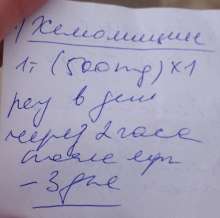 1) Хемомицин
1т (500mg) x 1
раз в день
через 2 часа
после еды
– 3 дня